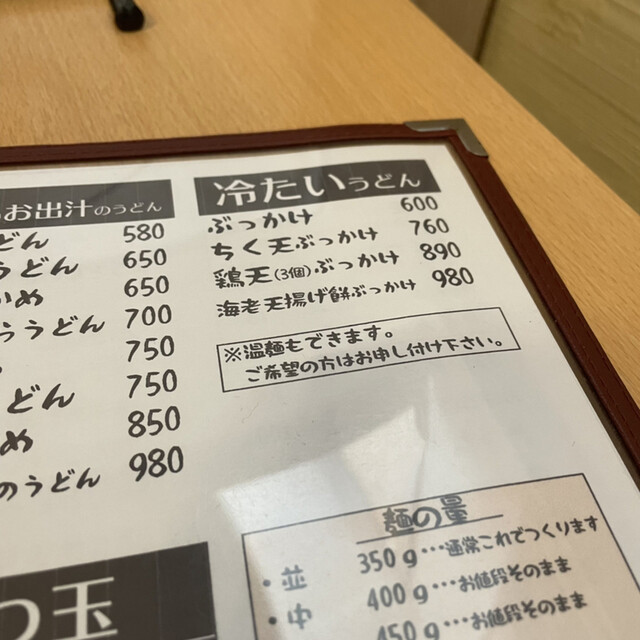 お出汁のうどん
どん 580
うどん 650
かめ 650
ううどん 700
750
どん 750
め 850
のうどん 980
冷たいうどん
ぶっかけ 600
ちく天ぶっかけ 760
鶏天(3個)ぶっかけ 890
海老天揚げ餅ぶっかけ 980
※温麺もできます。
ご希望の方はお申し付け下さい。
麺の量
・並 350g…通常これでつくります
・中 400g…お値段そのまま
450g…お値段そのまま
玉